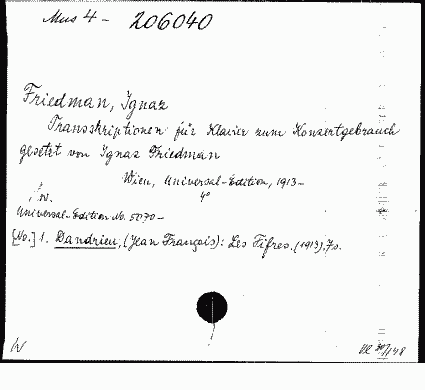 Mus 4 - 206040
Friedman, Ignaz
Transskriptionen für Klavier zum Konzertgebrauch
gesetzt von Ignaz Friedman
Wien, Universal-Edition, 1913-
4°
Universal-Edition No. 5070-
[No.] 1. Dandrieu, (Jean François): Les Fifres. (1913). 7s.
W